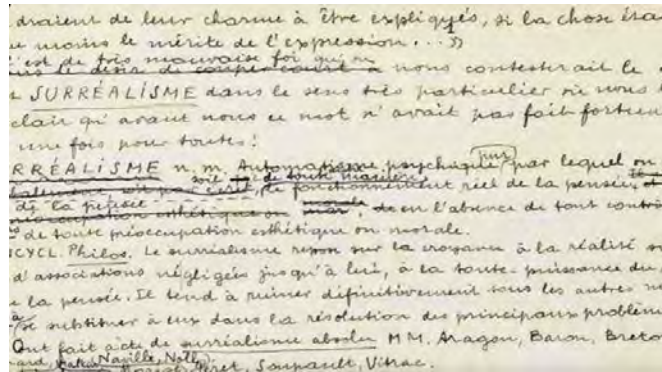 draient de leur charme à être expliqués, si la chose éta
moins le mérite de l'expression...»
c'est de très mauvaise foi qu'on
dans le désir de couper court à nous contesterait le
SURRÉALISME dans le sens très particulier où nous
clair qu'avant nous ce mot n'avait pas fait fortune
une fois pour toutes :
RRÉALISME n. m. Automatisme psychique pur par lequel on
soit de toute manière,
soit par écrit, le fonctionnement réel de la pensée,
de la pensée
préoccupation esthétique ou morale, en l'absence de tout contrô
de toute préoccupation esthétique ou morale.
CYCL. Philos. Le surréalisme repose sur la croyance à la réalité su
d'associations négligées jusqu'à lui, à la toute-puissance du
la pensée. Il tend à ruiner définitivement tous les autres m
se substituer à eux dans la résolution des principaux problèm
Ont fait acte de surréalisme absolu MM. Aragon, Baron, Breto
ard, Naville, Noll,
ret, Soupault, Vitrac.